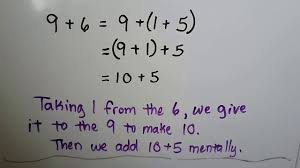 9 + 6 = 9 + (1 + 5)
= (9 + 1) + 5
= 10 + 5
Taking 1 from the 6, we give
it to the 9 to make 10.
Then we add 10+5 mentally.